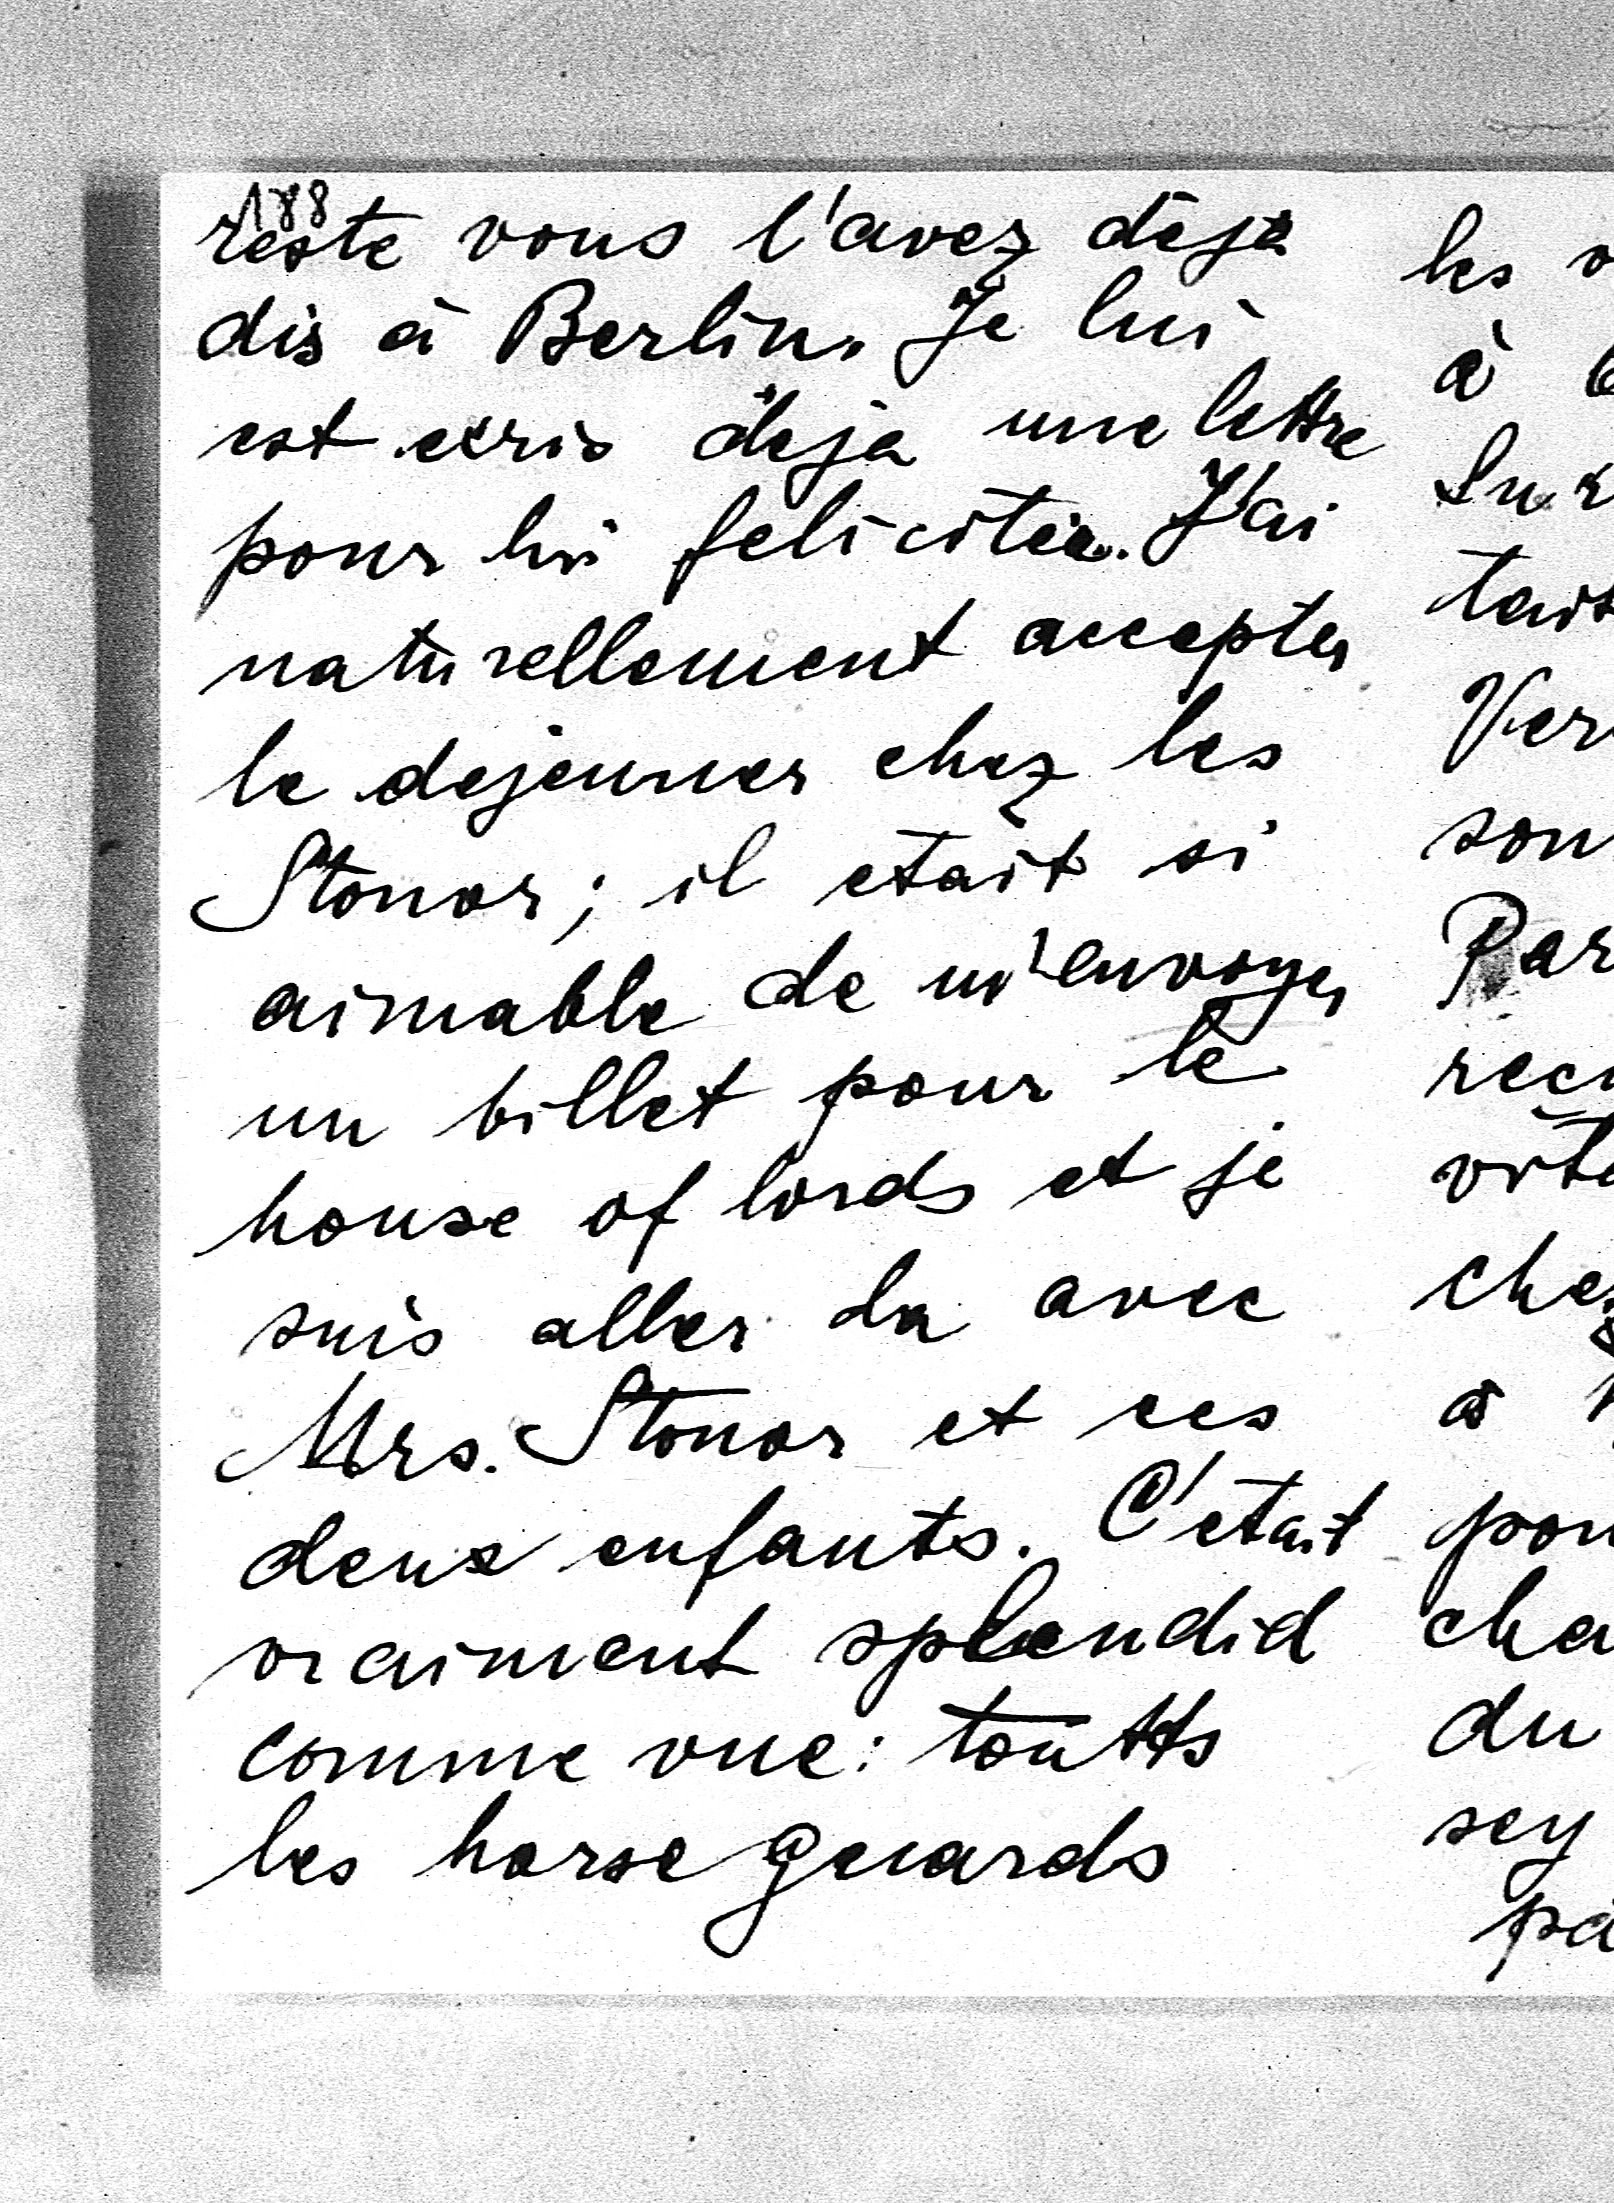 188
reste vous l'avez dejà
dis à Berlin. Je lui
est ecris dejà une lettre
pour lui feliciter. J'ai
naturellement accepter
le dejeuner chez les
Stonor; il etait si
aimable de m'envoyer
un billet pour le
house of lords et je
suis aller la avec
Mrs. Stonor et ces
deux enfants. C'etait
vraiment splendid
comme vue: toutts
les horse guards
les
à
tait
Ver
son
Par
recu
vite
chez
à
pou
cha
du
sey
pa